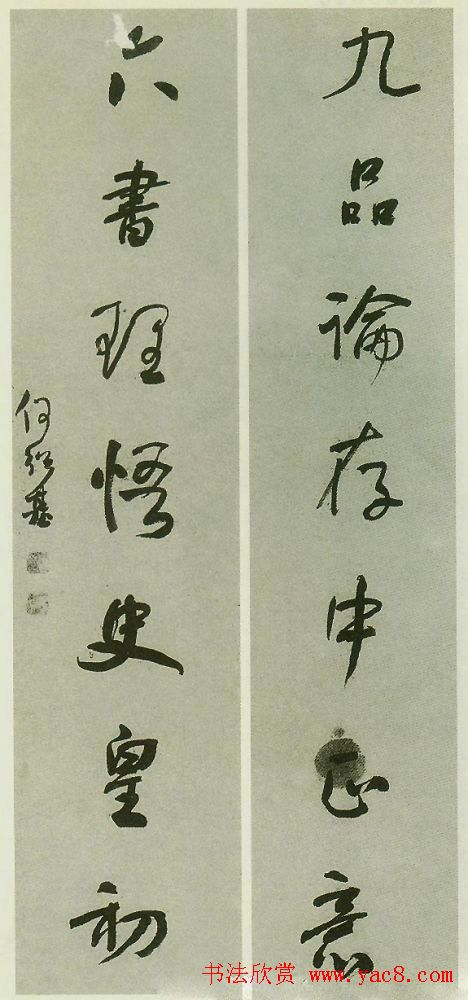 九品論存中正意
六書理悟史皇初
何紹基
书法欣赏 www.yac8.com